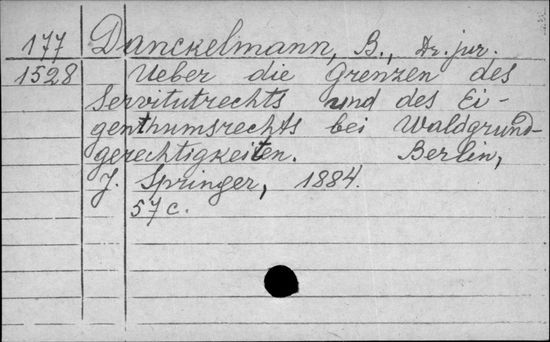 177 Danckelmann, B., Dr. jur.
1528 Ueber die Grenzen des
Servitutrechts und des Ei-
genthumsrechts bei Waldgrund-
gerechtigkeiten. Berlin,
J. Springer, 1884.
57 c.